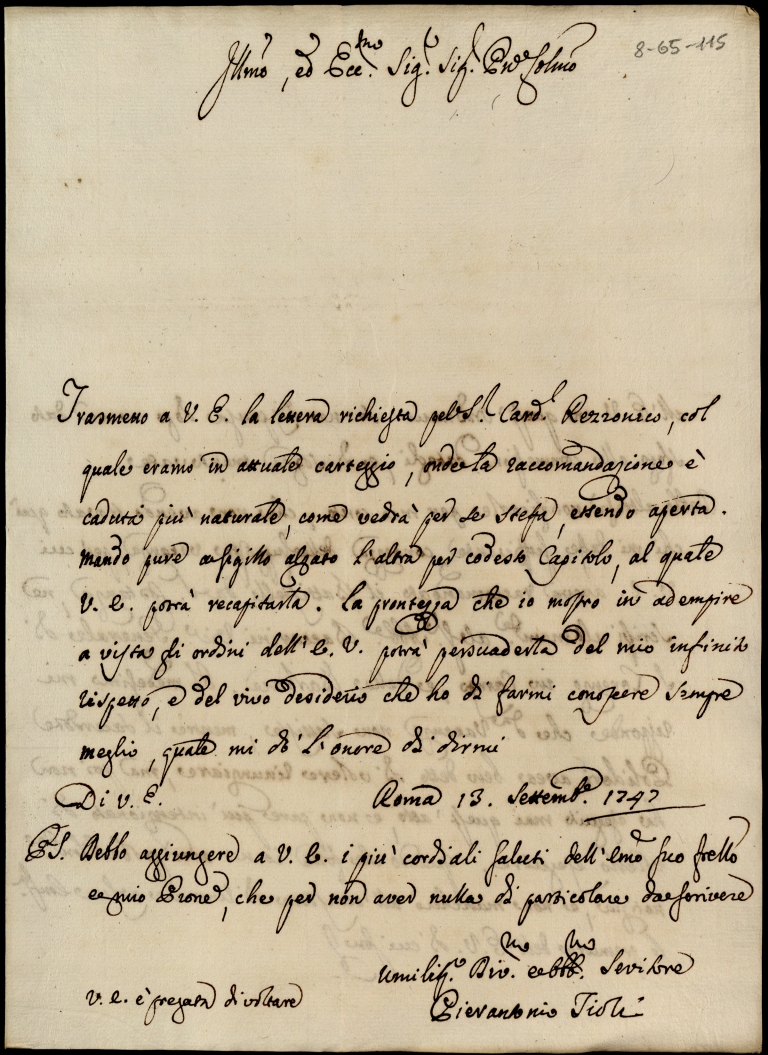 8-65-115
Illmo, ed Ecc.mo Sig.r Sig.r Pne Colmo
Trasmetto a V. E. la lettera richiesta pel S.r Card.l Rezzonico, col
quale eramo in attuale carteggio, onde la raccomandazione è
caduta più naturale, come vedrà per se stessa, essendo aperta.
Mando pure a sigillo alzato l'altra per codesto Capitolo, al quale
V. E. potrà recapitarla. La prontezza che io mostro in adempire
a vista gli ordini dell'E. V. potrà persuaderla del mio infinito
rispetto, e del vivo desiderio che ho di farmi conoscere sempre
meglio, quale mi dò l'onore di dirmi
Di V. E. Roma 13. Settemb.e 1747
PS. Debbo aggiungere a V. E. i più cordiali saluti dell'Emo suo frello
e mio Prone, che per non aver nulla di particolare da scrivere
Umiliss.mo Div.mo ed obb.mo Servitore
V. E. è pregata di voltare Pierantonio Tioli